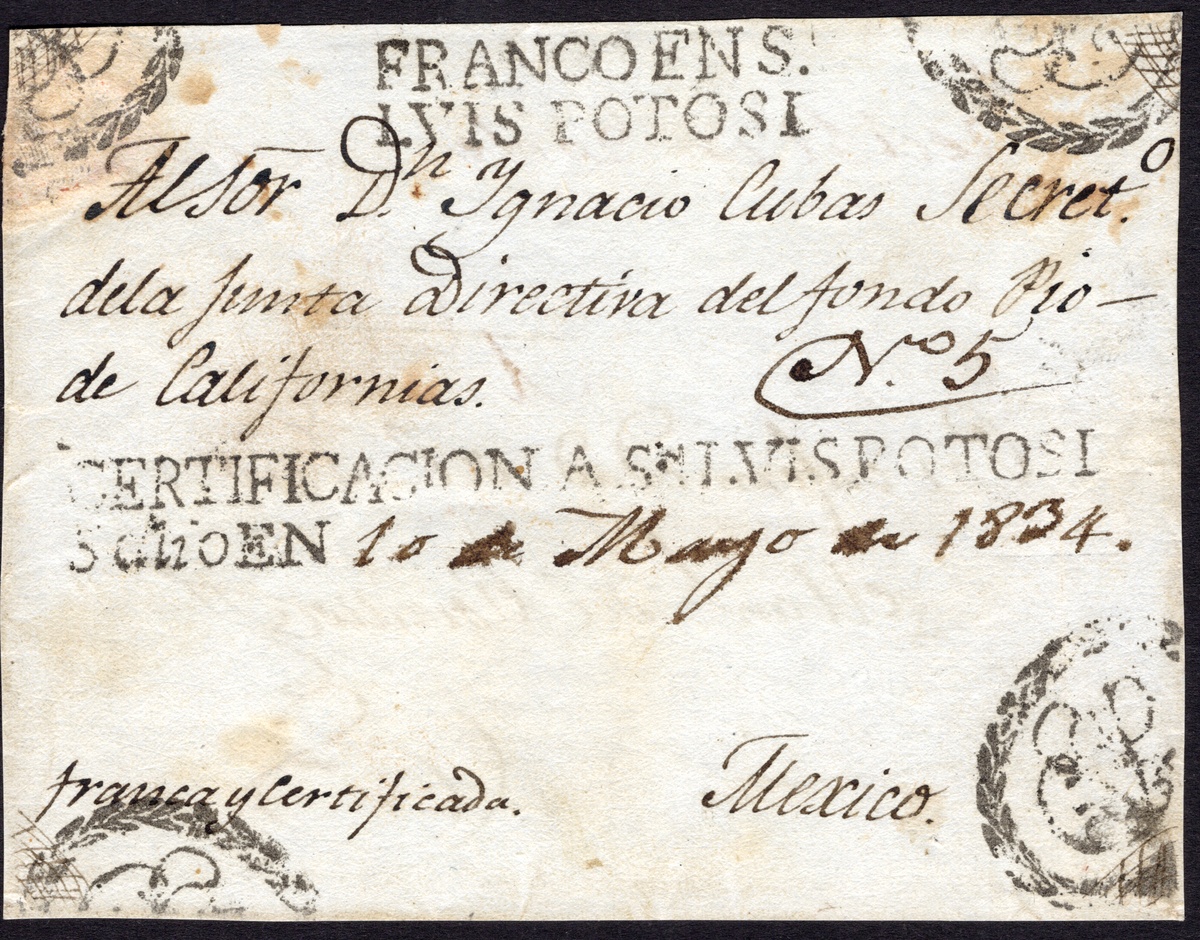 FRANCO EN S.
LVIS POTOSI
Al Sōr Dn. Ygnacio Cubas Secret.o
dela Junta Directiva del fondo Pio—
de Californias. N.o 5
CERTIFICACION A Sn LVIS POTOSI
EN 10 de Mayo de 1834.
franca y Certificada. Mexico.